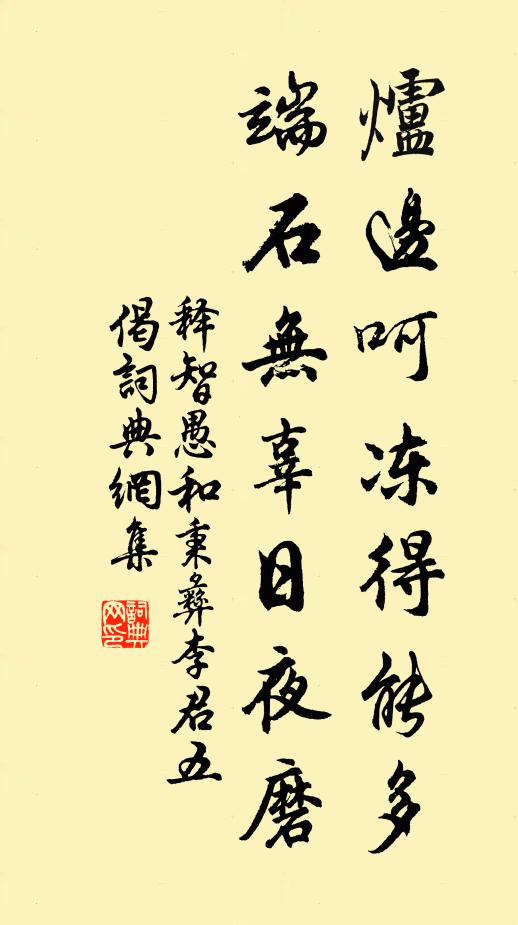 爐邊呵冻得能多
端石無辜日夜磨
释智愚和秉彝李君五
偈詞典網集
詞典網印